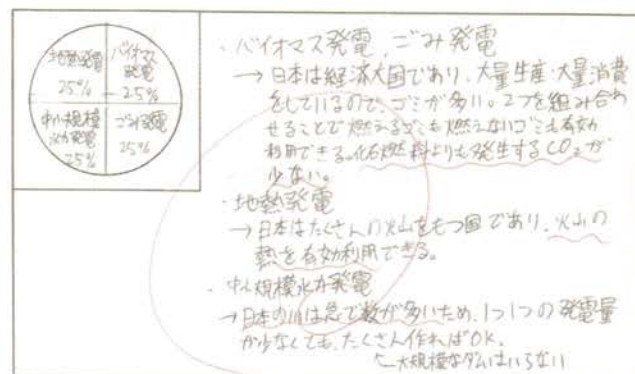 地熱発電
25%
バイオマス
発電
25%
中小規模
水力発電
25%
ごみ発電
25%
・バイオマス発電、ごみ発電
→日本は経済大国であり、大量生産・大量消費
をしているので、ゴミが多い。2つを組み合わ
せることで燃えるゴミも燃えないゴミも有効
利用できる。化石燃料よりも発生するCO2が
少ない。
・地熱発電
→日本はたくさんの火山をもつ国であり、火山の
熱を有効利用できる。
・中小規模水力発電
→日本の川は急で数が多いため、1つ1つの発電量
が少なくても、たくさん作ればOK。
←大規模なダムはいらない